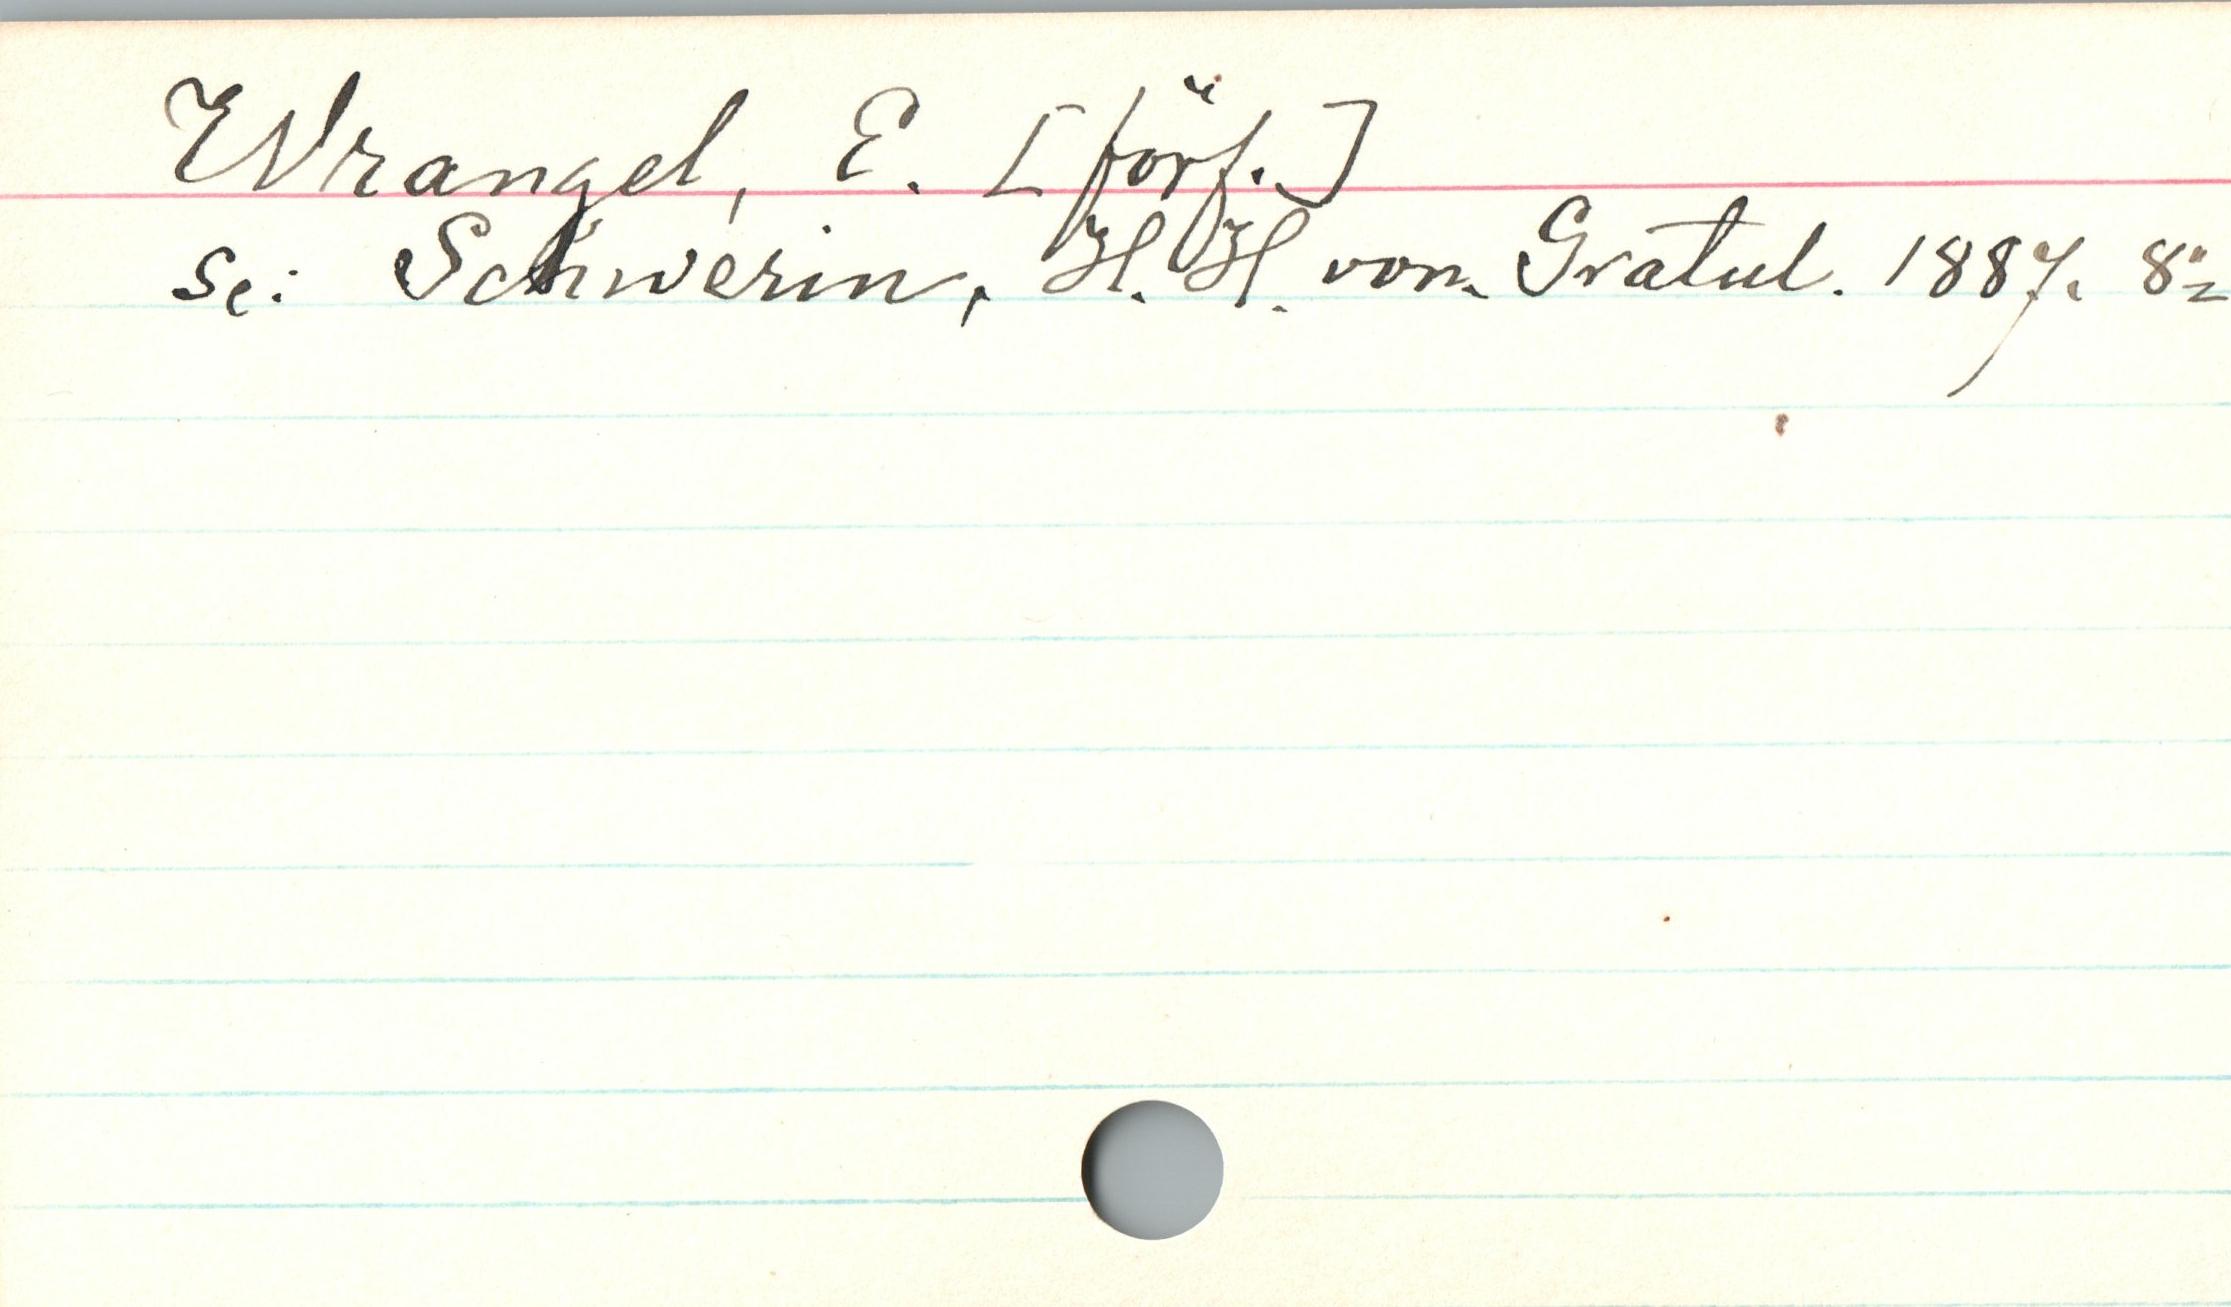 Wrangel, E. [förf.]
se: Schwerin, H. H. von. Gratul. 1887. 8:o